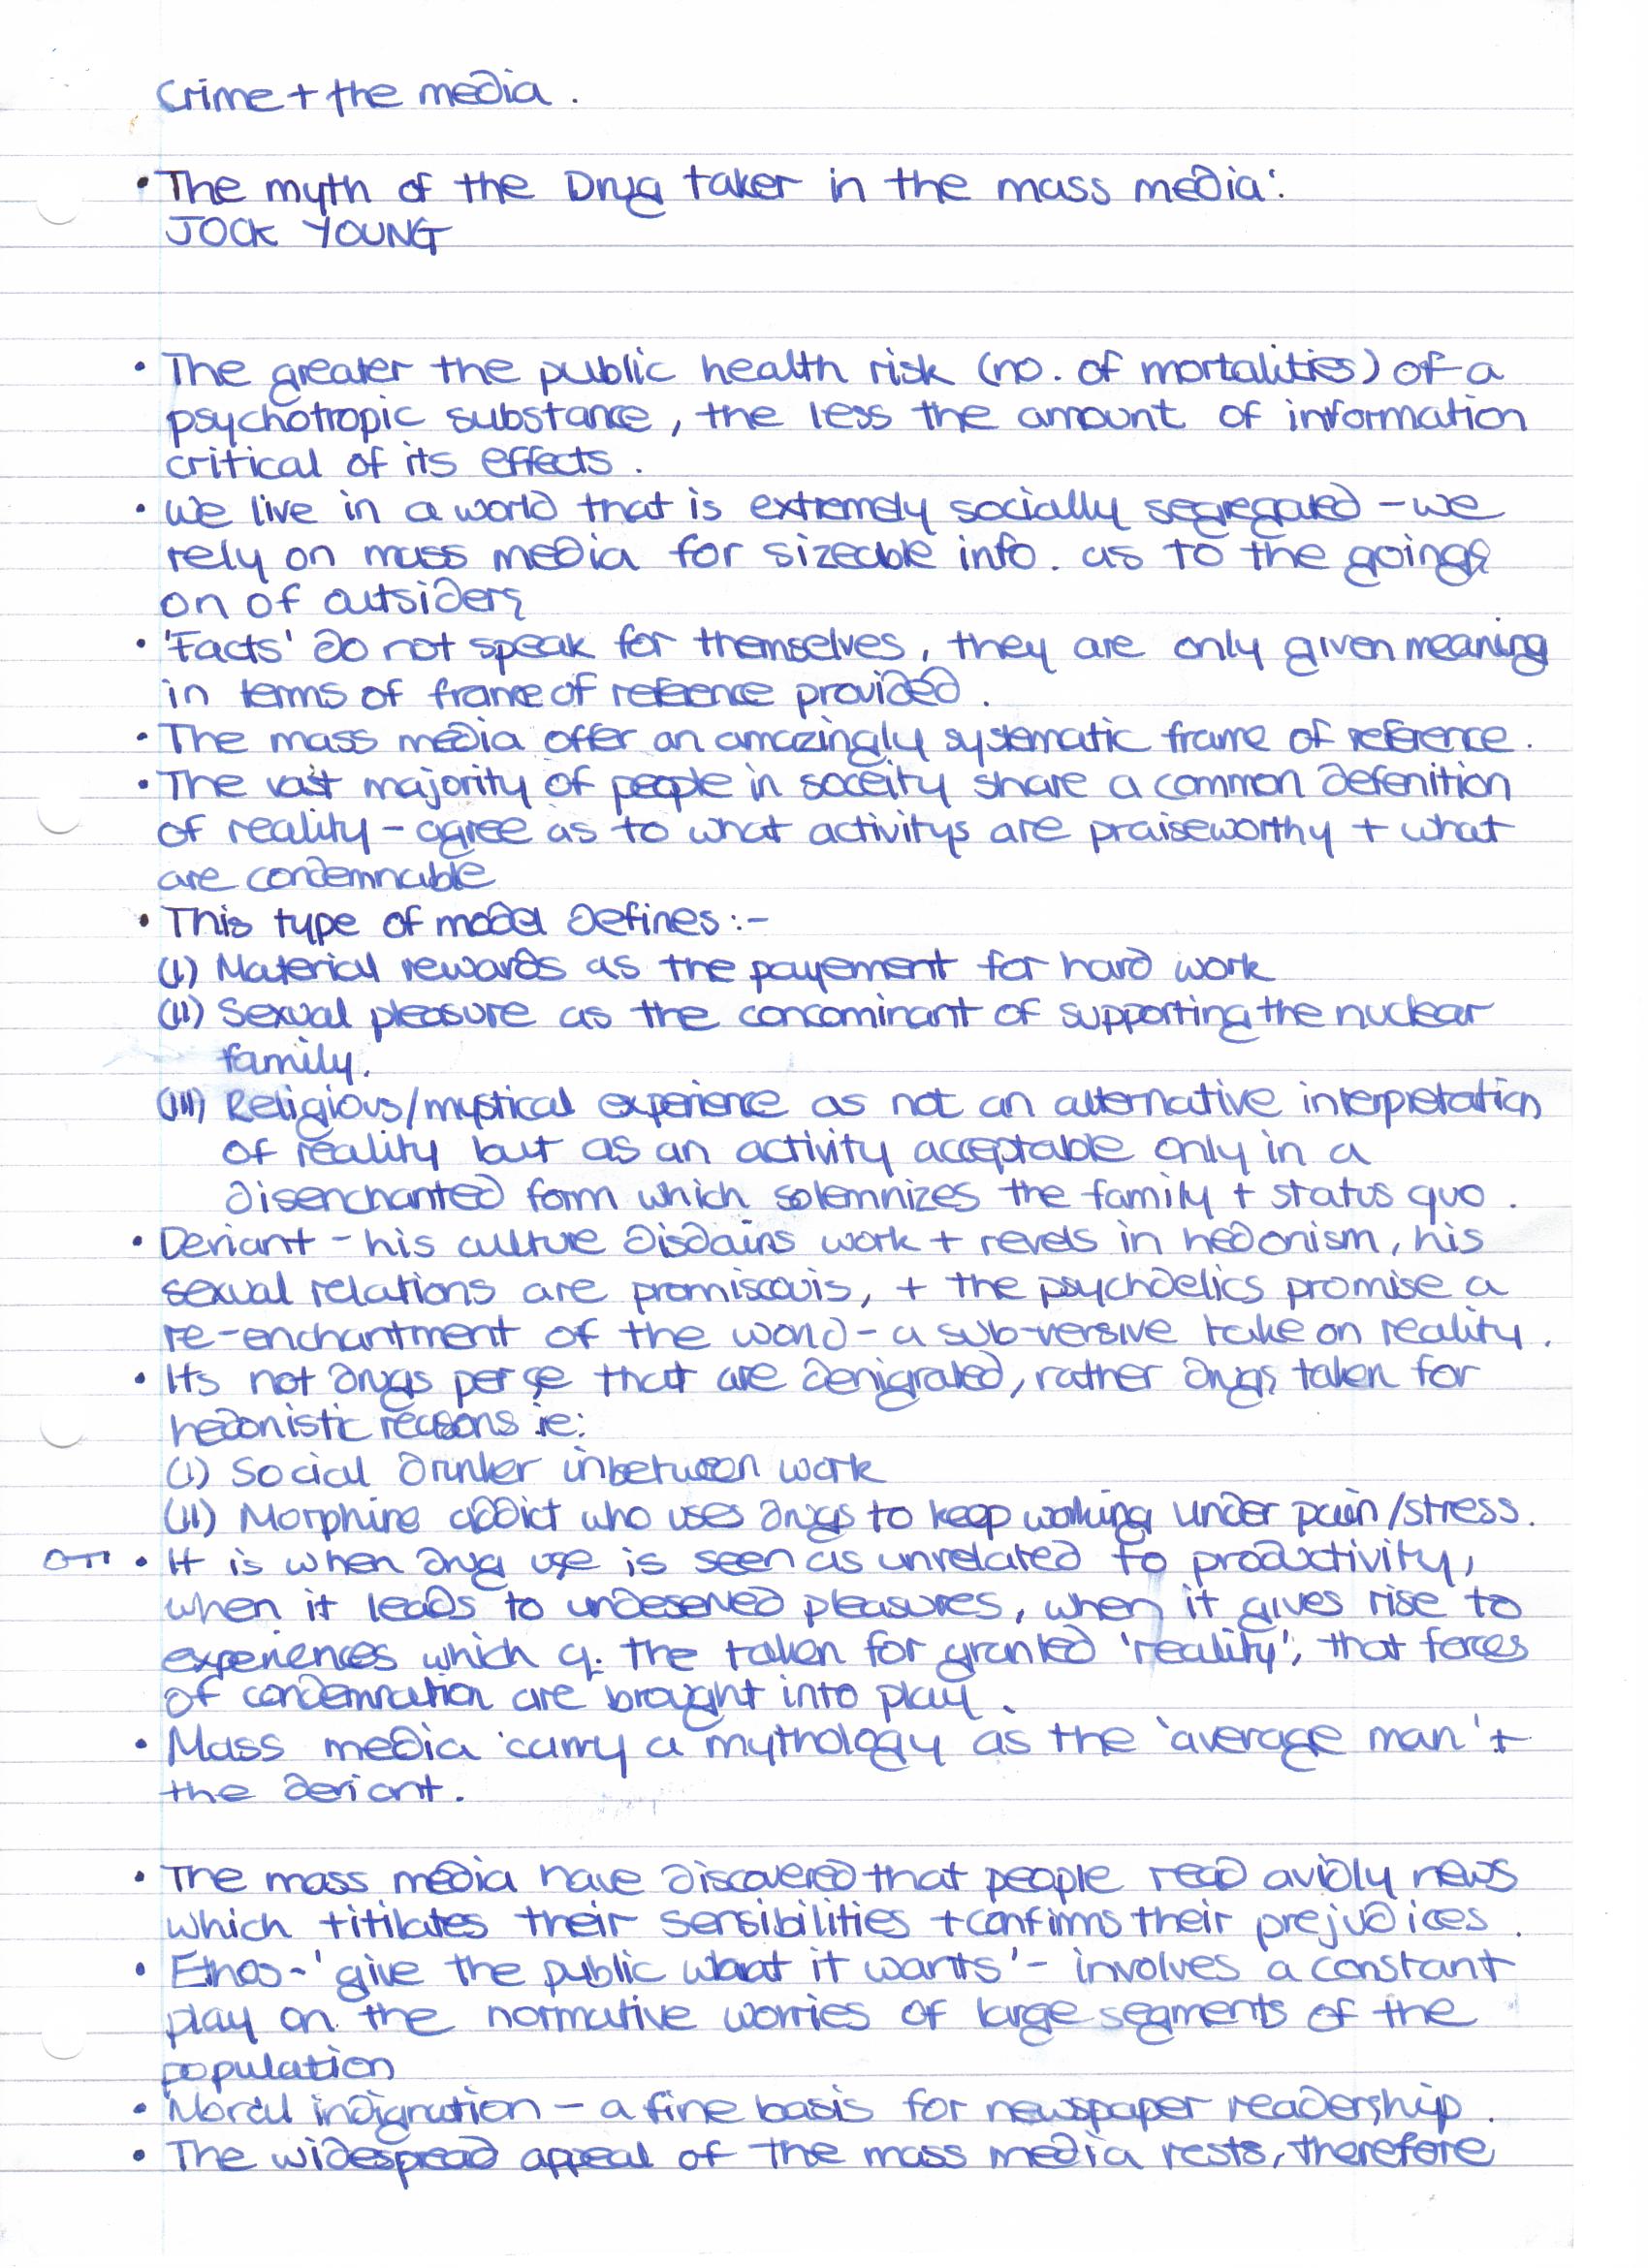 Crime + the media.
• The myth of the Drug taker in the mass media'.
JOCK YOUNG
• The greater the public health risk (no. of mortalities) of a
psychotropic substance, the less the amount of information
critical of its effects.
• We live in a world that is extremely socially segregated - we
rely on mass media for sizeable info. as to the goings
on of outsiders
• 'Facts' do not speak for themselves, they are only given meaning
in terms of frame of reference provided.
• The mass media offer an amazingly systematic frame of reference.
• The vast majority of people in soceity share a common defenition
of reality - agree as to what activitys are praiseworthy + what
are condemnable
• This type of model defines:-
(i) Material rewards as the payement for hard work
(ii) Sexual pleasure as the concominant of supporting the nuclear
family.
(iii) Religious/mystical experience as not an alternative interpretation
of reality but as an activity acceptable only in a
disenchanted form which solemnizes the family + status quo.
• Deviant - his culture disdains work + revels in hedonism, his
sexual relations are promiscouis, + the psychdelics promise a
re-enchantment of the world - a sub-versive take on reality.
• Its not drugs per se that are denigrated, rather drugs taken for
hedonistic reasons ie:
(i) Social drinker inbetween work
(ii) Morphine addict who uses drugs to keep working under pain/stress.
• It is when drug use is seen as unrelated to productivity,
when it leads to undeserved pleasures, when it gives rise to
experiences which q. the taken for granted 'reality', that forces
of condemnation are brought into play.
• Mass media carry a mythology as the 'average man' +
the deviant.
• The mass media have discovered that people read avidly news
which titilates their sensibilities + confirms their prejudices.
• Ethos - 'give the public what it wants' - involves a constant
play on the normative worries of large segments of the
population
• Moral indignation - a fine basis for newspaper readership.
• The widespread appeal of the mass media rests, therefore